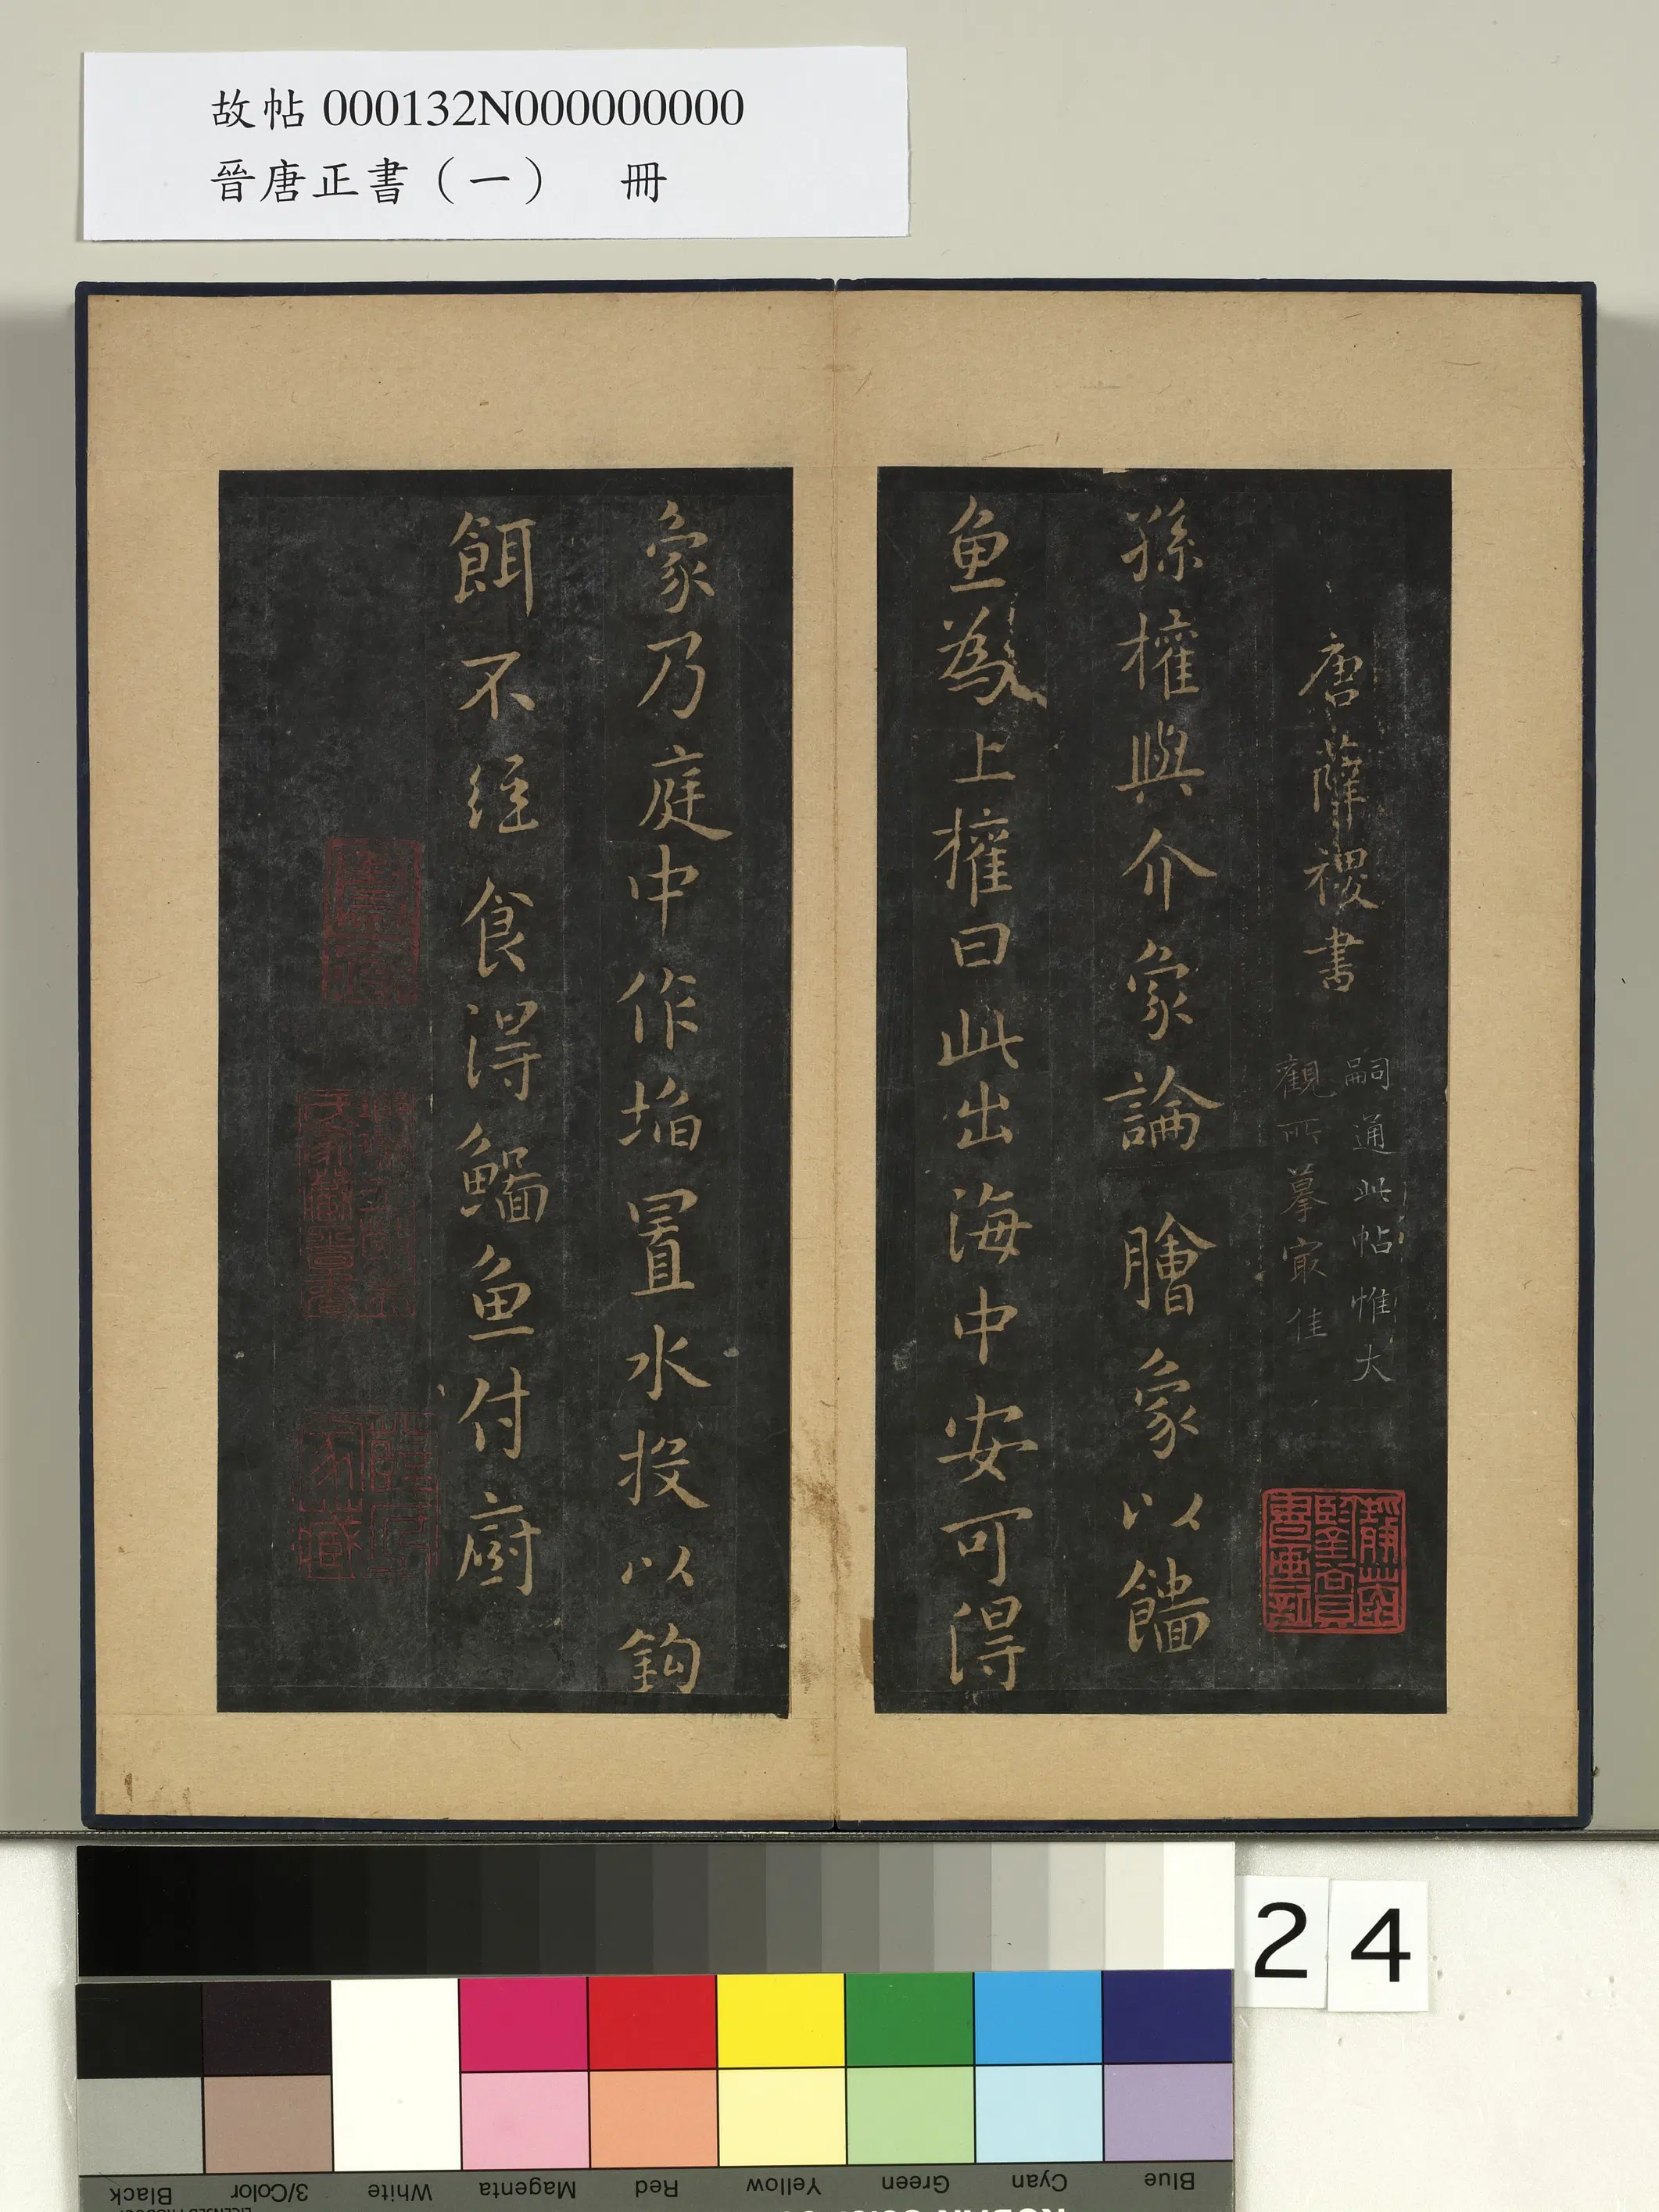 故帖 000132N000000000
晉唐正書（一） 冊
唐薛稷書
嗣通此帖惟大
觀所摹㝡佳
孫權與介象論膾象以饐
魚為上權曰此出海中安可得
象乃庭中作埳置水投以鈎
餌不經食得鯔魚付廚
24
Black
3/Color
White
Magenta
Red
Yellow
Green
Cyan
Blue